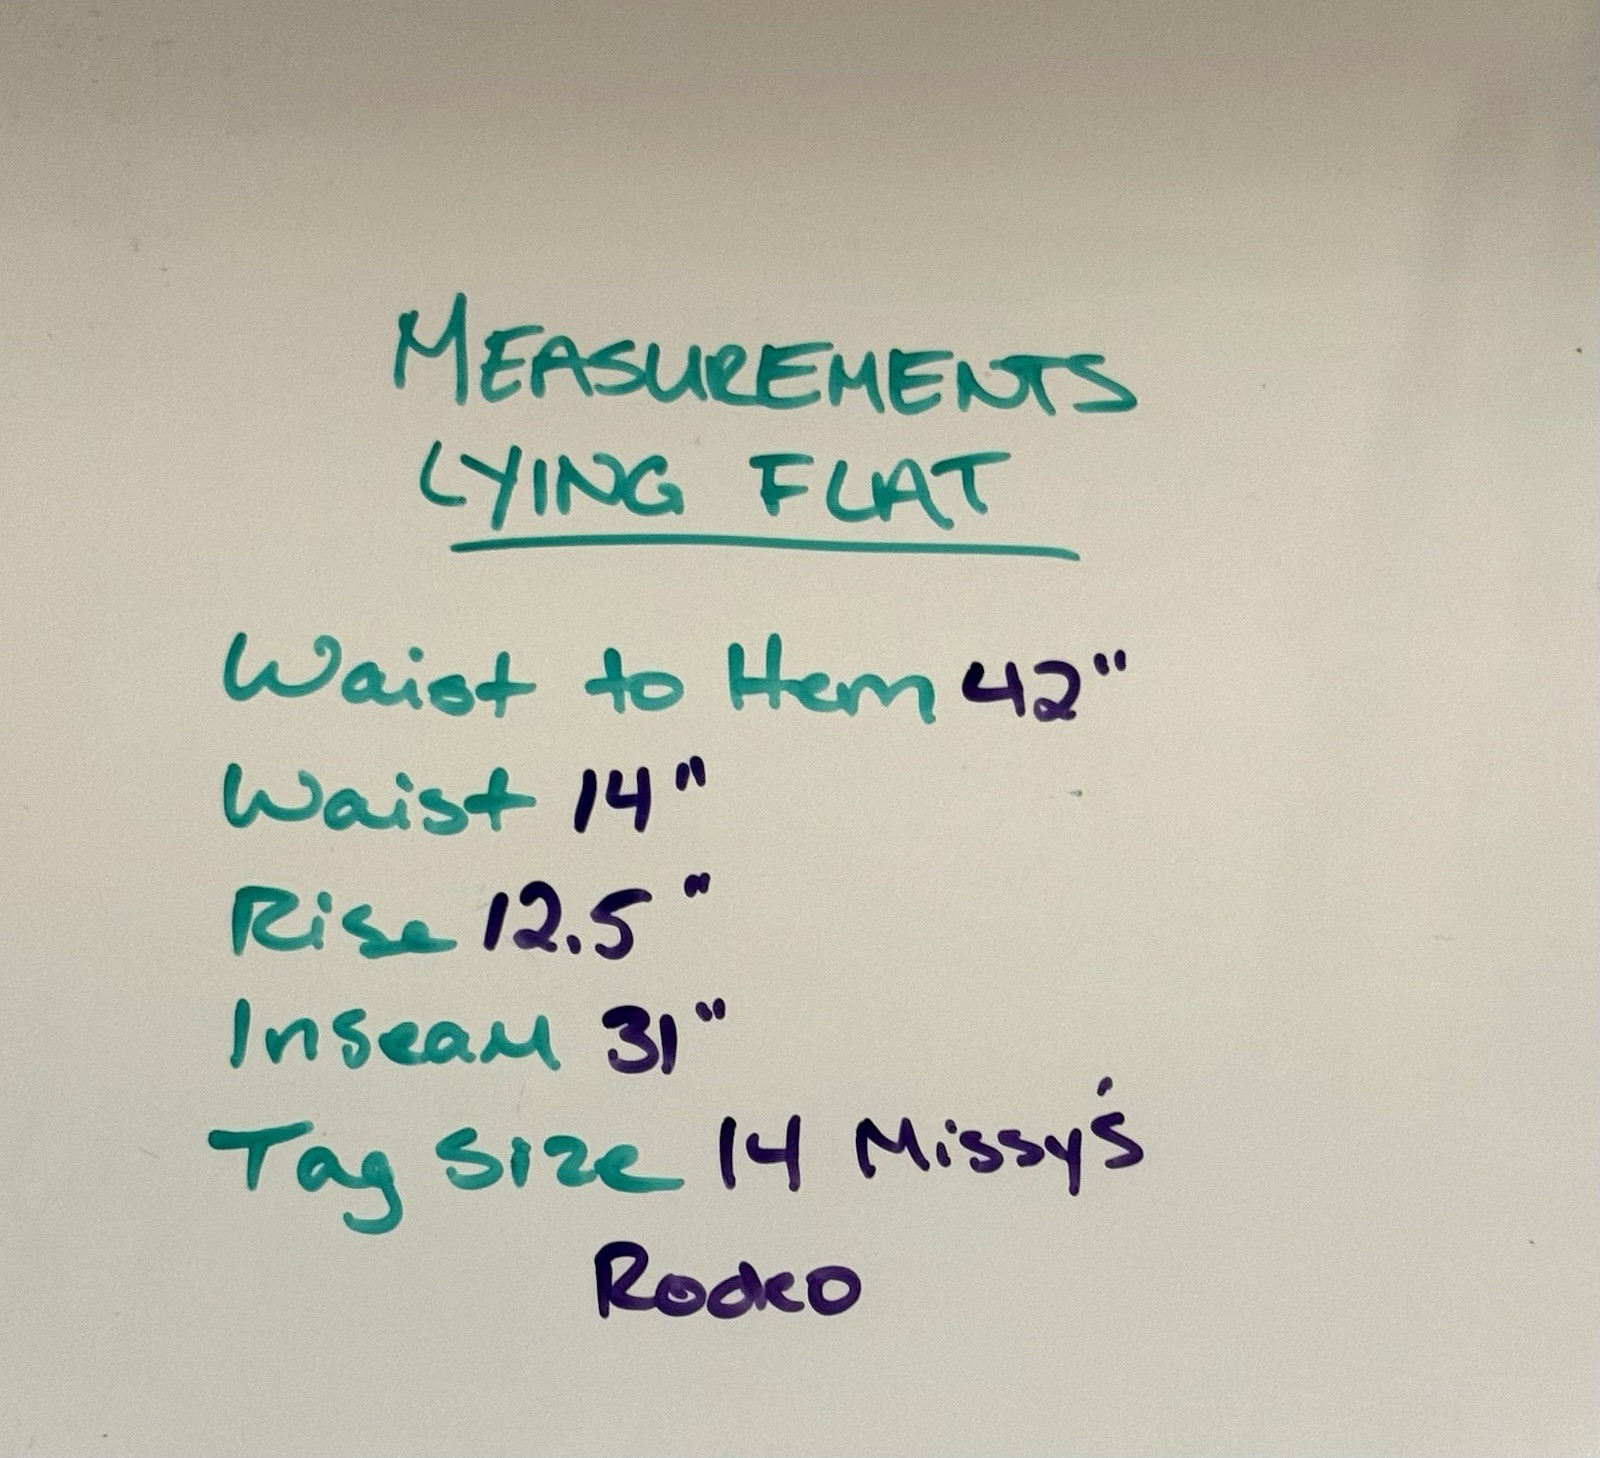 MEASUREMENTS
LYING FLAT
Waist to Hem 42"
Waist 14"
Rise 12.5"
Inseam 31"
Tag Size 14 Missy's
Rodeo